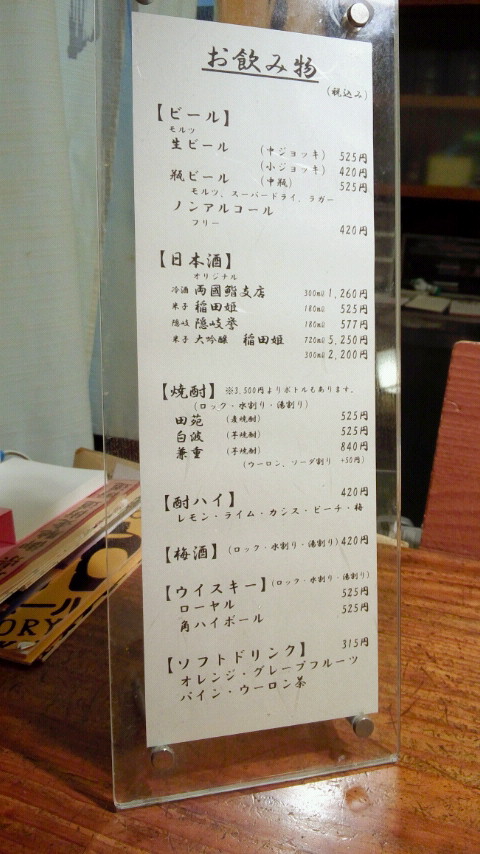 お飲み物
(税込み)
【ビール】
モルツ
生ビール (中ジョッキ) 525円
(小ジョッキ) 420円
瓶ビール (中瓶) 525円
モルツ、スーパードライ、ラガー
ノンアルコール
フリー 420円
【日本酒】
オリジナル
冷酒 両國鮨支店 300ml 1,260円
米子 稲田姫 180ml 525円
隠岐 隠岐誉 180ml 577円
米子 大吟醸 稲田姫 720ml 5,250円
300ml 2,200円
【焼酎】 ※3,500円よりボトルもあります。
(ロック・水割り・湯割り)
田苑 (麦焼酎) 525円
白波 (芋焼酎) 525円
兼重 (芋焼酎) 840円
(ウーロン、ソーダ割り +50円)
【酎ハイ】 420円
レモン・ライム・カシス・ピーチ・梅
【梅酒】 (ロック・水割り・湯割り) 420円
【ウイスキー】 (ロック・水割り・湯割り)
ローヤル 525円
角ハイボール 525円
【ソフトドリンク】 315円
オレンジ・グレープフルーツ
パイン・ウーロン茶
ORY